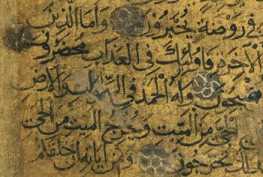 في روضة يحبرون وأما الذين
الآخرة فأولئك في العذاب محضرون
تصبحون وله الحمد في السموت والأرض
الحي من الميت ويخرج الميت من الحي
تخرجون ومن آياته أن خلقكم